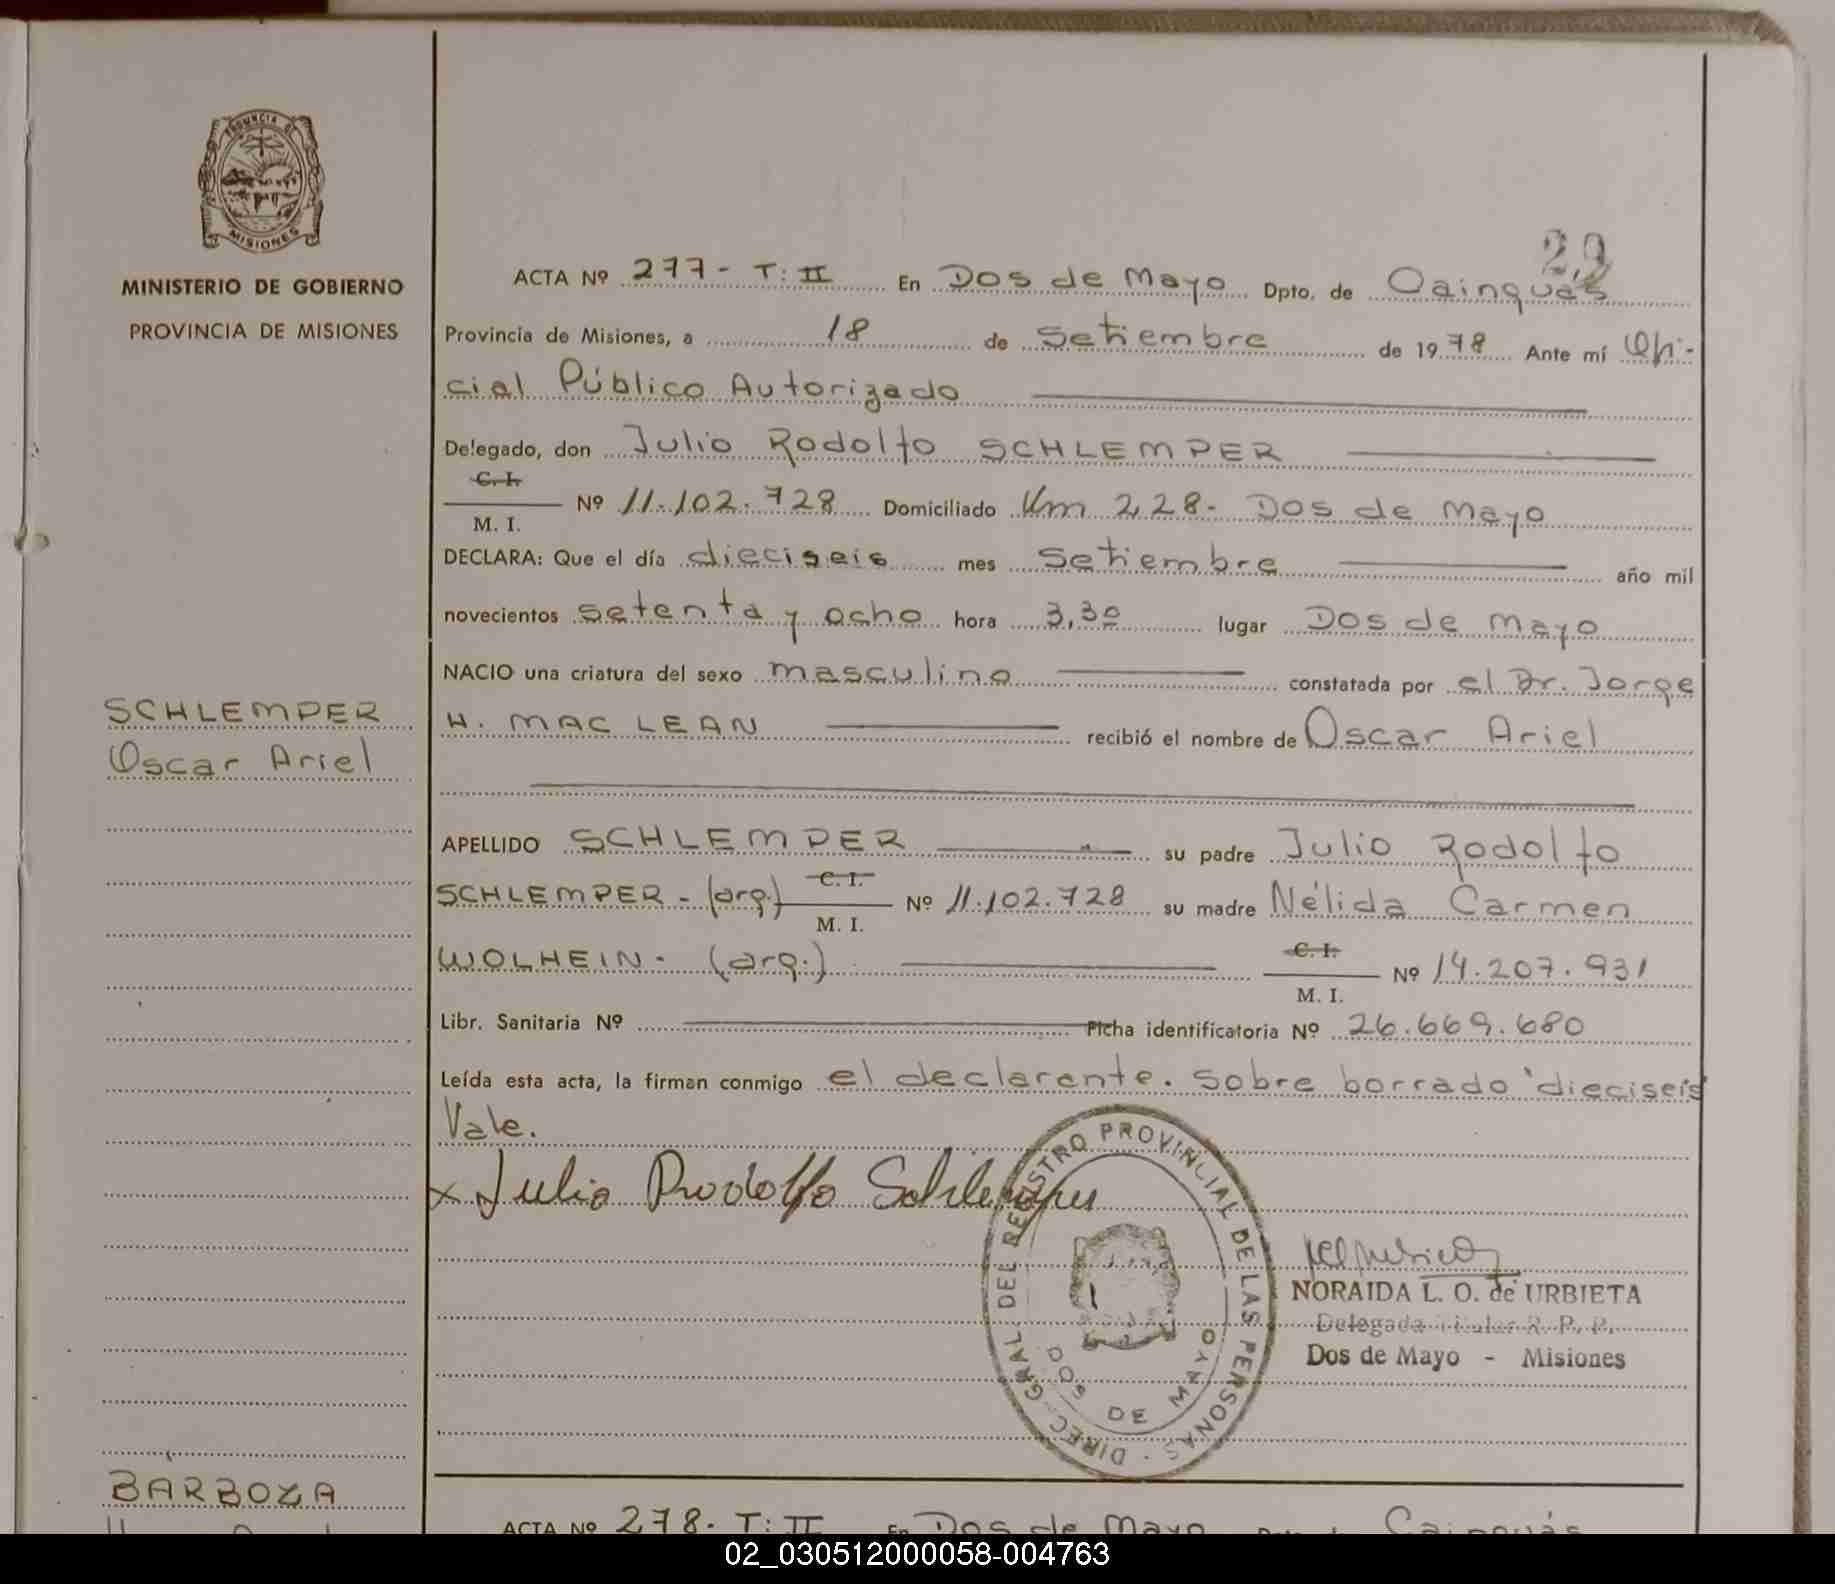 PROVINCIA DE
MISIONES
MINISTERIO DE GOBIERNO
PROVINCIA DE MISIONES
22
ACTA Nº 277- T: II En Dos de Mayo Dpto. de Cainguás
Provincia de Misiones, a 18 de Setiembre de 1978 Ante mí Ofi-
cial Público Autorizado
Delegado, don Julio Rodolfo SCHLEMPER
C. I.
Nº 11.102.728 Domiciliado Km 228- Dos de Mayo
M. I.
DECLARA: Que el día dieciseis mes Setiembre año mil
novecientos setenta y ocho hora 3,30 lugar Dos de Mayo
NACIO una criatura del sexo masculino constatada por el Dr. Jorge
SCHLEMPER
Oscar Ariel
H. MAC LEAN recibió el nombre de Oscar Ariel
APELLIDO SCHLEMPER su padre Julio Rodolfo
SCHLEMPER - (arg.) C. I. Nº 11.102.728 su madre Nélida Carmen
M. I.
WOLHEIN - (arg.) C. I. Nº 14.207.931
M. I.
Libr. Sanitaria Nº Ficha identificatoria Nº 26.669.680
Leída esta acta, la firman conmigo el declarante. Sobre borrado "dieciseis"
Vale.
x Julio Rodolfo Schlemper
DIREC. GRAL DEL REGISTRO PROVINCIAL DE LAS PERSONAS
DOS DE MAYO
NORAIDA L. O. de URBIETA
Delegada Titular R. P. P.
Dos de Mayo - Misiones
BARBOZA
ACTA Nº 278- T: II En Dos de Mayo Cainguás
02_030512000058-004763